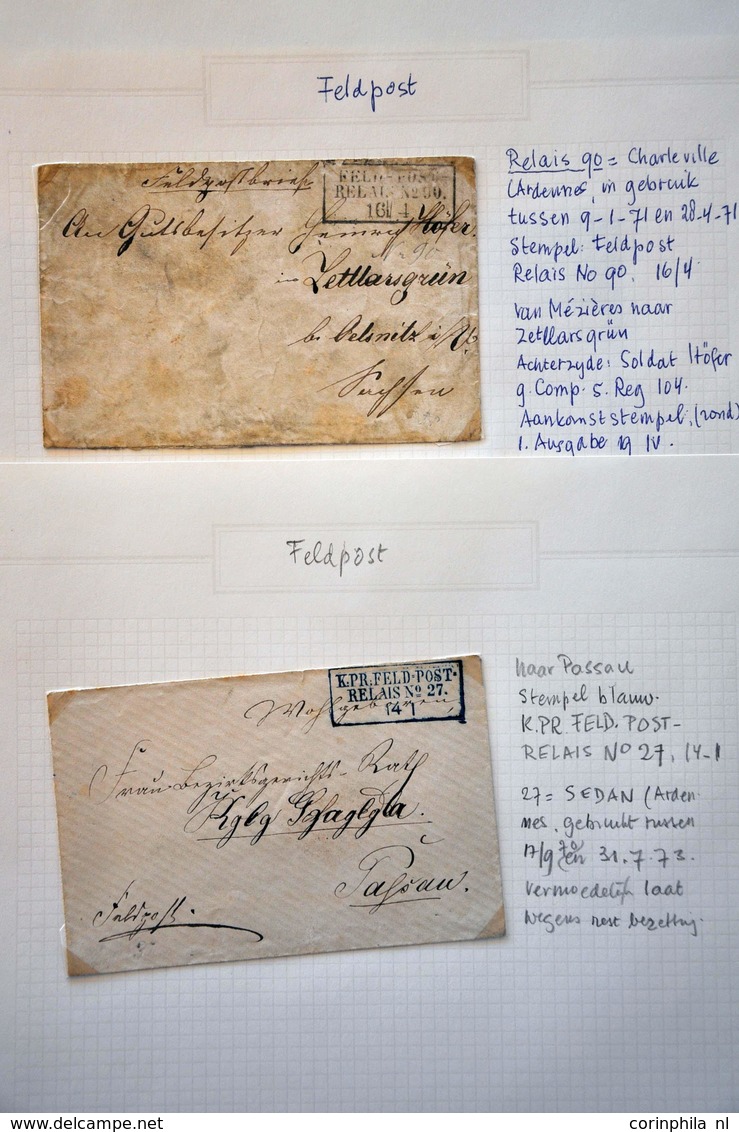 Feldpost
Feldpostbrief
FELD-POST
RELAIS No 90.
16 4
An Gutsbesitzer Heinrich Höfer
in Zettlarsgrün
b. Oelsnitz i/V.
Sachsen
Relais 90 = Charleville
(Ardennes, in gebruik
tussen 9-1-71 en 28-4-71
Stempel: Feldpost
Relais No 90. 16/4
van Mézières naar
Zetllarsgrün
Achterzyde: Soldat Höfer
9. Comp. 5. Reg 104.
Aankomststempel, (rond)
1. Ausgabe 19 IV.
Feldpost
K.PR.FELD-POST-
RELAIS No 27.
14 1
Wohlgeboren,
Frau Bezirksgerichts-Rath
Passau.
Feldpost.
naar Passau
Stempel blauw.
K.PR. FELD. POST-
RELAIS No 27, 14-1
27 = SEDAN (Arden-
nes, gebruikt tussen
17/9 70 en 31.7.73.
vermoedelijk laat
wegens rest bezetting.
corinphila nl